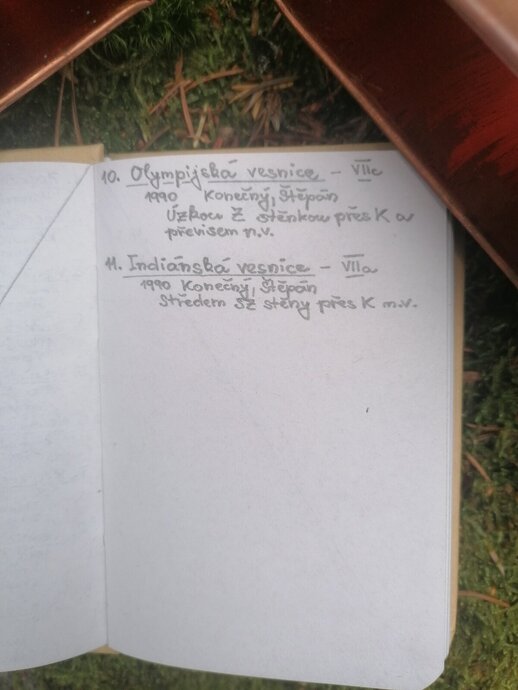 10. Olympijská vesnice - VIIc
1990 Konečný, Štěpán
Úzkou Z stěnkou přes K a
převisem n.v.
11. Indiánská vesnice - VIIa
1990 Konečný, Štěpán
Středem SZ stěny přes K m.v.